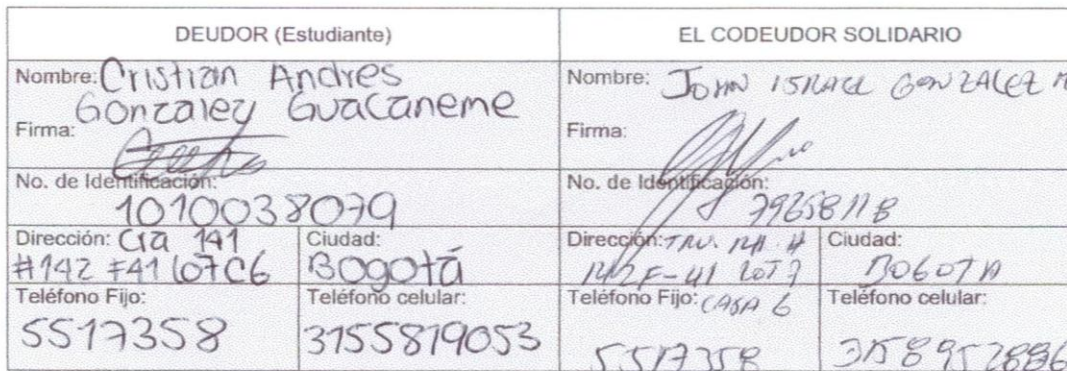 DEUDOR (Estudiante)
EL CODEUDOR SOLIDARIO
Nombre: Cristian Andres
Gonzalez Guacaneme
Nombre: JOHN ISRAEL GONZALEZ
Firma:
Firma:
No. de Identificación:
1010038079
No. de Identificación:
79658118
Dirección: Cra 141
#142 F41 lo7 C6
Ciudad:
Bogotá
Dirección: TRV. 141 #
142F-41 LOT 7
Ciudad:
BOGOTA
Teléfono Fijo:
5517358
Teléfono celular:
3155819053
Teléfono Fijo: CASA 6
5517358
Teléfono celular:
3158952886